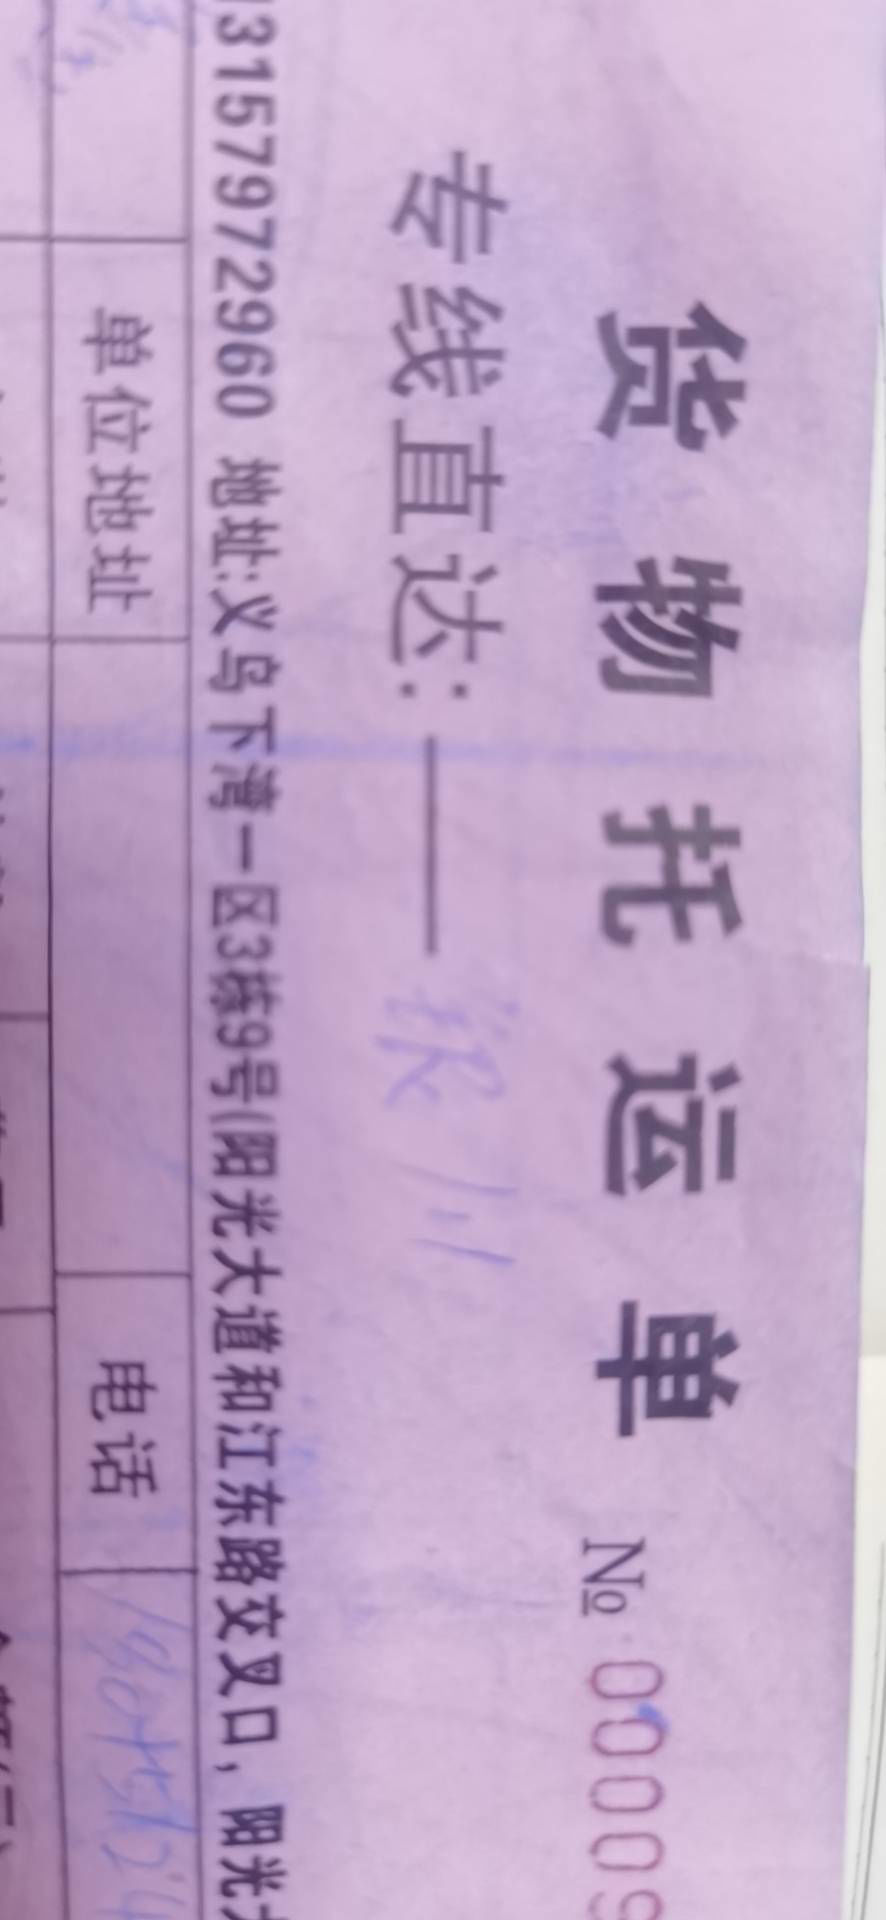 货物托运单 № 00009
专线直达:—— 银川
13157972960 地址:义乌下湾一区3栋9号(阳光大道和江东路交叉口, 阳光大
单位地址 电话